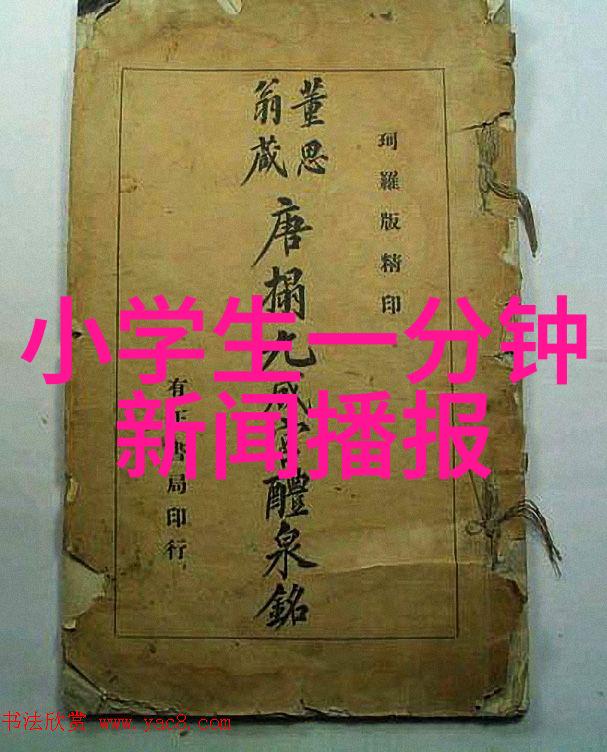 珂羅版精印
董思
翁藏
唐搨九成宮醴泉銘
有正書局印行
小学生一分钟
新闻播报
书法欣赏 www.yac8.com